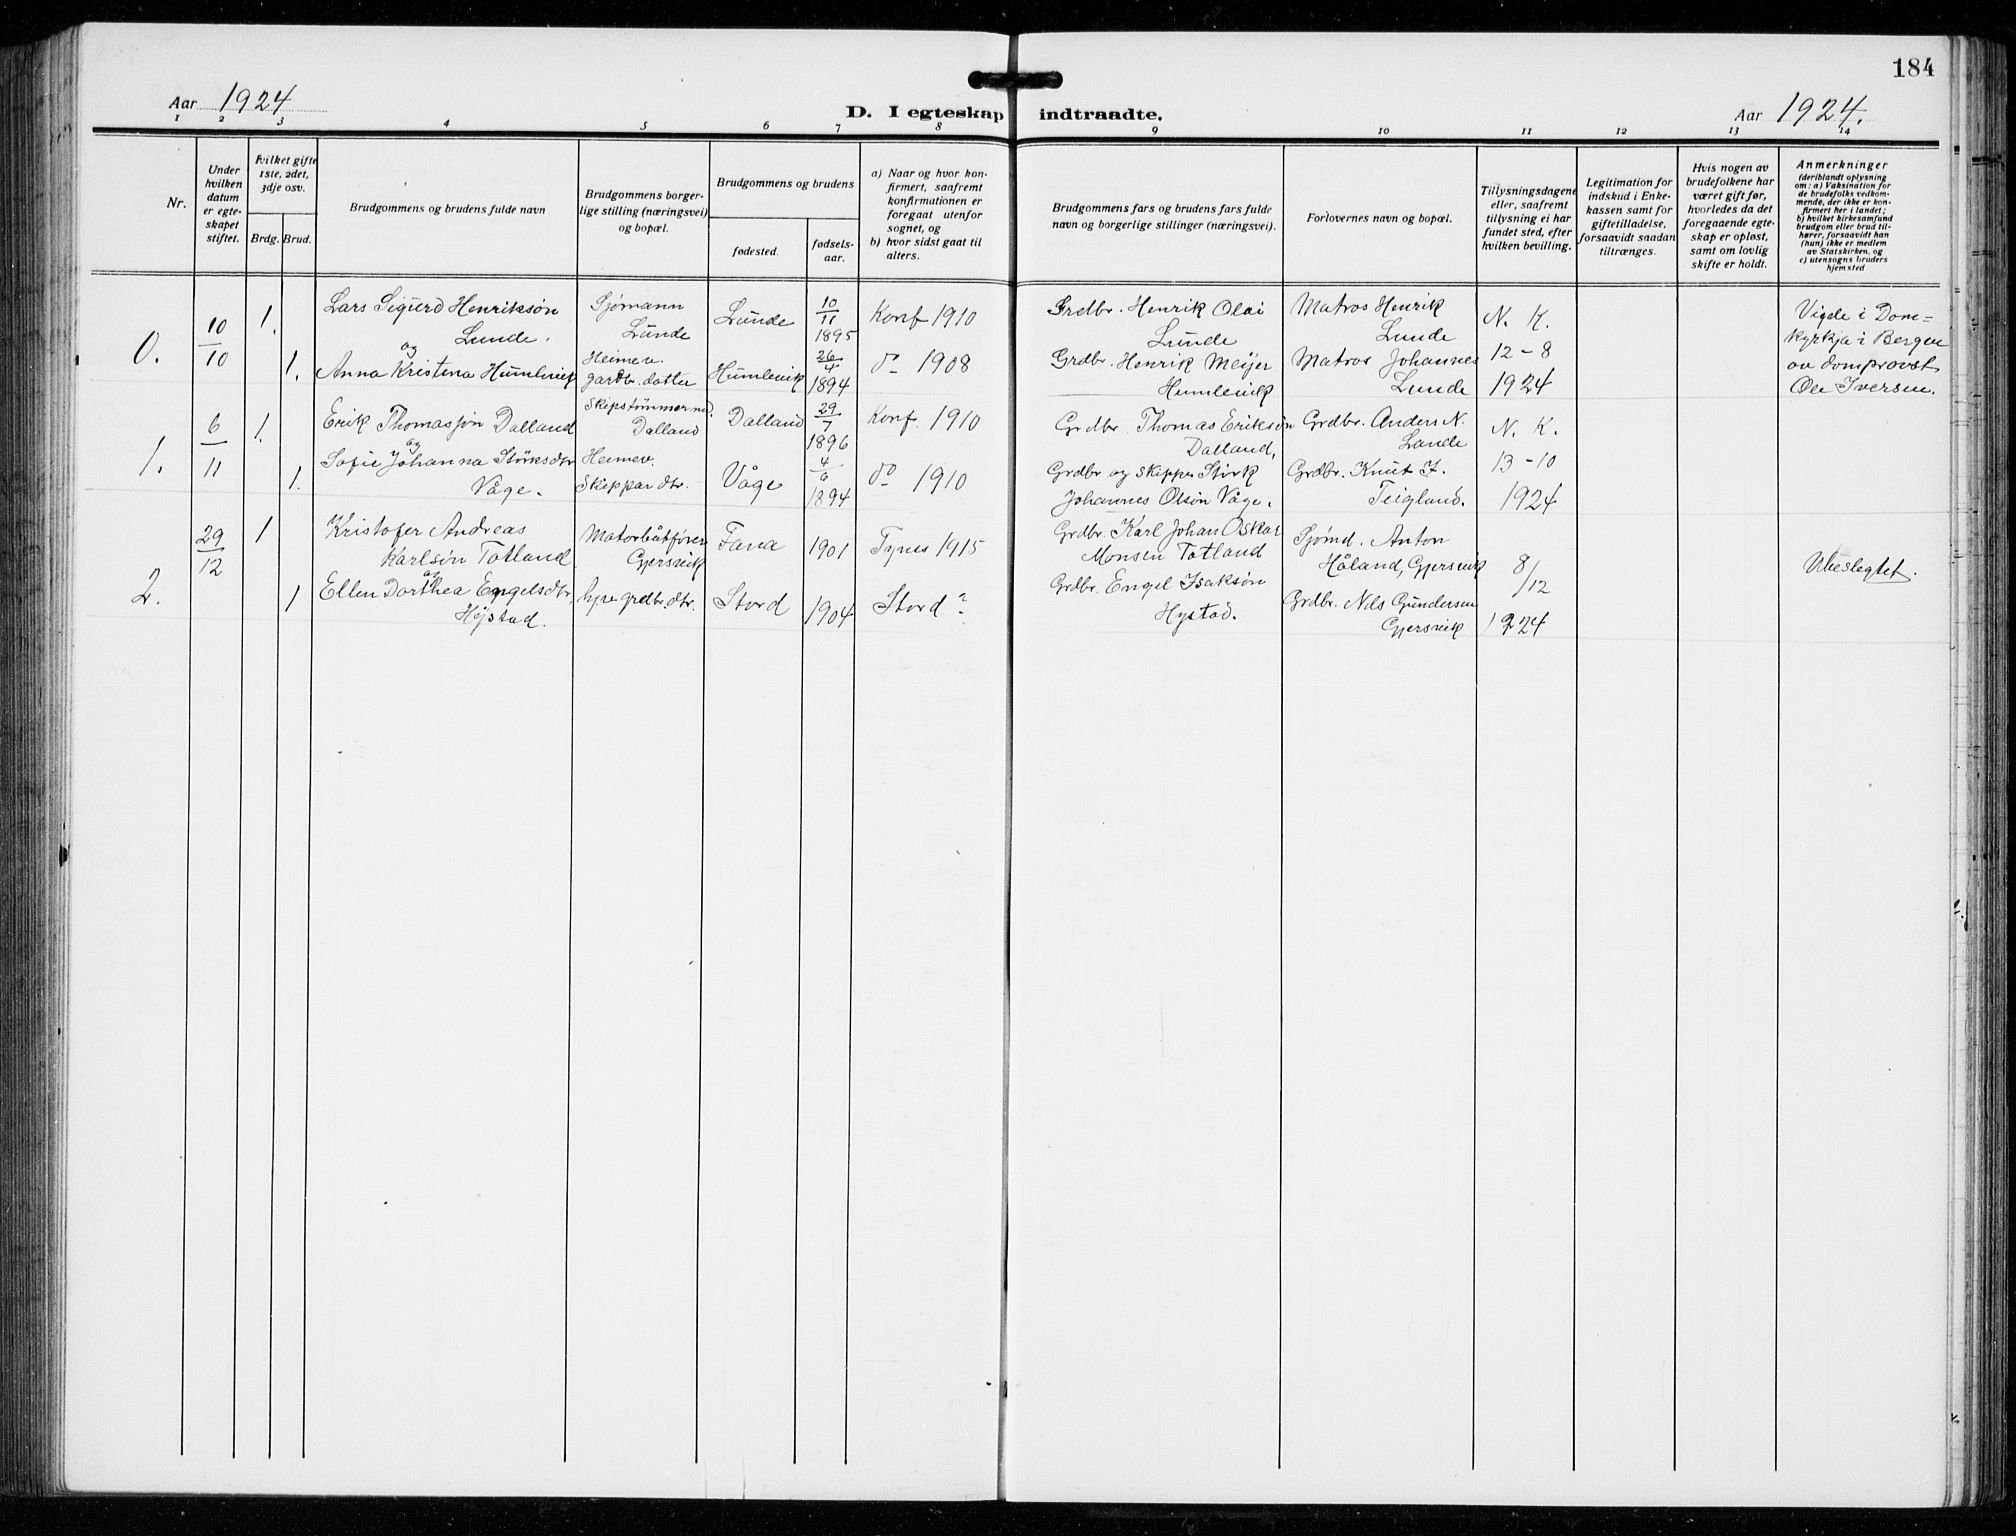 184
Aar 1924
D. I egteskap indtraadte.
Aar 1924.
1 2 3 4 5 6 7 8 9 10 11 12 13 14
Nr.
Under hvilken datum er egteskapet stiftet.
Hvilket gifte 1ste, 2det, 3dje osv.
Brdg. Brud.
Brudgommens og brudens fulde navn
Brudgommens borgerlige stilling (næringsvei) og bopæl.
Brudgommens og brudens
fødested.
fødselsaar.
a) Naar og hvor konfirmert, saafremt konfirmationen er foregaat utenfor sognet, og
b) hvor sidst gaat til alters.
Brudgommens fars og brudens fars fulde navn og borgerlige stillinger (næringsvei).
Forlovernes navn og bopæl.
Tillysningsdagene eller, saafremt tillysning ei har fundet sted, efter hvilken bevilling.
Legitimation for indskud i Enkekassen samt for giftetilladelse, forsaavidt saadan tiltrænges.
Hvis nogen av brudefolkene har været gift før, hvorledes da det foregaaende egteskap er opløst, samt om lovlig skifte er holdt.
Anmerkninger
(deriblandt oplysning om: a) Vaksination for de brudefolks vedkommende, der ikke er konfirmert her i landet; b) hvilket kirkesamfund brudgom eller brud tilhører, forsaavidt han (hun) ikke er medlem av Statskirken, og c) utensogns bruders hjemsted
0.
10/10
1.
Lars Sigurd Henriksøn
Lunde.
og
Sjømann
Lunde
Lunde
10/11
1895
Konf 1910
Grdbr. Henrik Olai
Lunde
Matros Henrik
Lunde
N. K.
12-8
1924
Vigde i Dom=
kyrkja i Bergen
av domprovst
Ole Iversen.
1.
Anna Kristina Humlevik
Heimev.
gardbr. datter
Humlevik
26/4
1894
do 1908
Grdbr. Henrik Meijer
Humlevik
Matros Johannes
Lunde
1.
6/11
1.
Erik Thomassøn Dalland
og
Skipstømmermd.
Dalland
Dalland
29/7
1896
Konf 1910
Grdbr. Thomas Eriksøn
Dalland,
Grdbr. Anders N.
Lande
N. K.
13-10
1924
1.
Sofie Johanna Størksdtr
Våge.
Heimev.
Skippar dtr.
Våge
4/6
1894
do 1910
Grdbr og skipper Størk
Johannes Olsøn Våge.
Grdbr. Knut I.
Teigland.
2.
29/12
1
Kristofer Andreas
Karlsøn Totland
og
Motorbåtfører
Gjersvik
Fana
1901
Tysnes 1915
Grdbr. Karl Johan Oskar
Monsen Totland
Sjømd. Anton
Håland, Gjersvik
8/12
1924
Ubeslegtet.
1
Ellen Dorthea Engelsdtr.
Høystad.
grdbr. dtr.
Stord
1904
Stord?
Grdbr. Engel Isaksøn
Hystad.
Grdbr. Nils Gundersen
Gjersvik